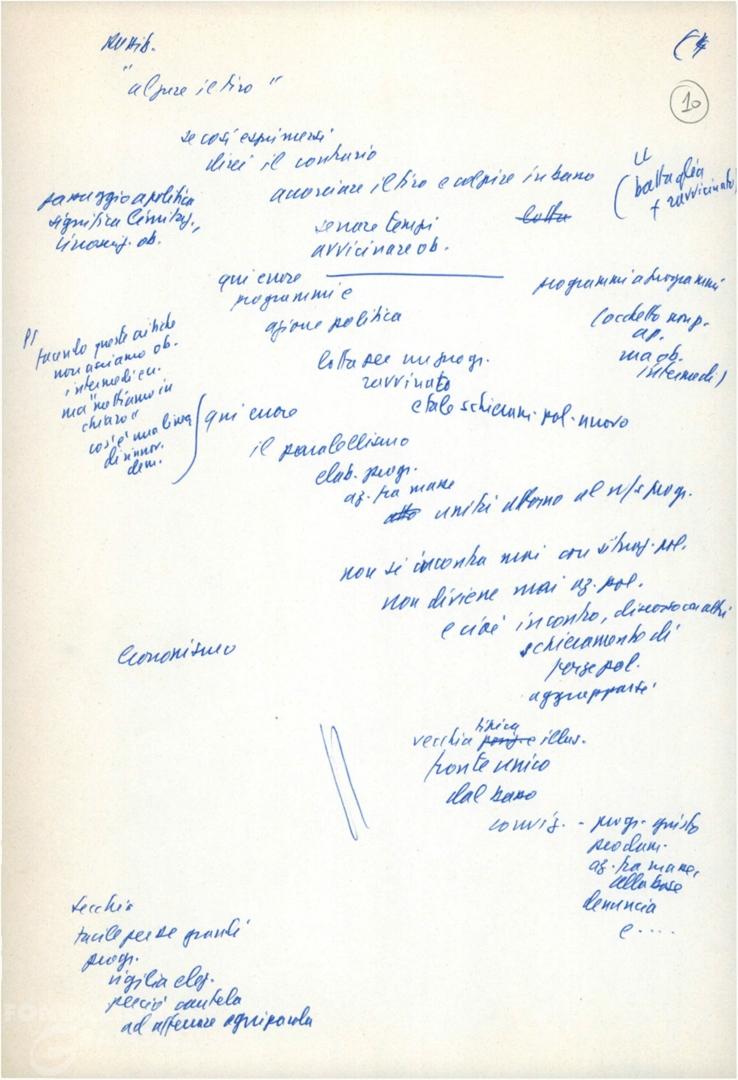 "alzare il tiro"
10
se così esprimersi
direi il contrario
accorciare il tiro e colpire in basso
(battaglia
+ ravvicinata)
passaggio a politica
significa limitaz.,
ob.
serrare tempi
lotta
avvicinare ob.
qui errore
programmi e
azione politica
programmi a programmi
(occhetto non p.
ap.
ma ob.
intermedi)
PS
facendo queste critiche
non abbiamo ob.
intermedi
ma "mettiamo in
chiaro"
cos'è una linea
di rinnov.
dem.
lotta per un progr.
ravvinato
e tale schieram. pol. nuovo
qui errore
il parallelismo
elab. progr.
az. fra masse
unitri attorno al n/s progr.
non si incontra mai con situaz. pol.
non diviene mai az. pol.
e cioè incontro, discorso con altri
schieramento di
forze pol.
aggrupparsi
economismo
tipica
vecchia illus.
fronte unico
dal basso
convinz. - progr. giusto
az. fra masse,
alla base
denuncia
e ....
secchia
facile per se grandi
progr.
vigilia elez.
perciò cautela
ad afferrare ogni parola